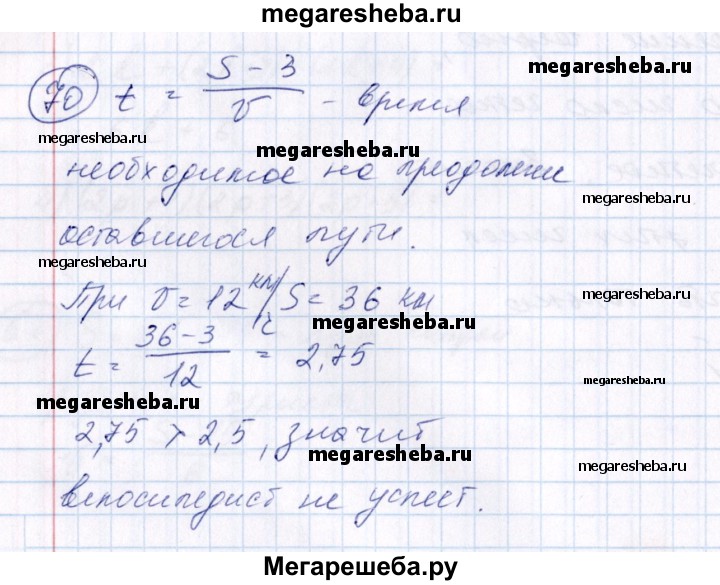 megaresheba.ru
70 t = (S - 3)/v - время
megaresheba.ru
megaresheba.ru
megaresheba.ru
необходимое на
megaresheba.ru
оставшегося пути.
megaresheba.ru
megaresheba.ru
При v = 12 км/ч S = 36 км
megaresheba.ru
megaresheba.ru
t = (36 - 3)/12 = 2,75
megaresheba.ru
megaresheba.ru
2,75 > 2,5, значит
megaresheba.ru
megaresheba.ru
велосипедист не успеет.
Мегарешеба.ру